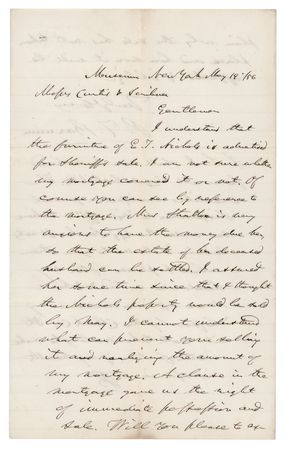 Museum New York May 18th/66
Messrs Curtis & Scribner
Gentlemen
I understand that
the furniture of E. T. Nichols is advertised
for Sheriffs sale. I am not sure whether
my mortgage covered it or not. Of
course you can see by reference to
the mortgage. Mrs is very
anxious to have the money due her
so that the estate of her deceased
husband can be settled. I assured
her some time since that I thought
the Nichols property would be sold
by May. I cannot understand
what can prevent your selling
it and realizing the amount of
my mortgage. A clause in the
mortgage gave us the right
of immediate possession and
sale. Will you please to ex-